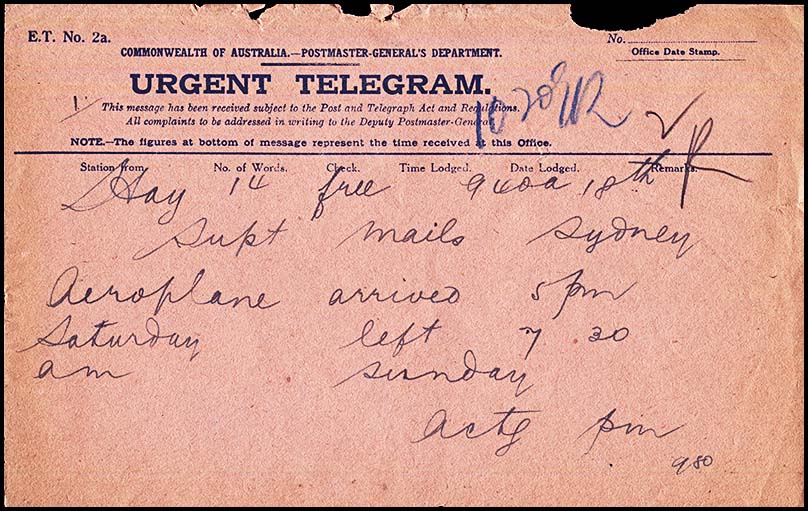 E.T. No. 2a.
No.
COMMONWEALTH OF AUSTRALIA.—POSTMASTER-GENERAL'S DEPARTMENT.
Office Date Stamp.
URGENT TELEGRAM.
This message has been received subject to the Post and Telegraph Act and Regulations.
All complaints to be addressed in writing to the Deputy Postmaster-General.
NOTE.—The figures at bottom of message represent the time received at this Office.
Station from No. of Words. Check. Time Lodged. Date Lodged. Remarks.
Hay 14 free 940a 18th
Supt mails Sydney
Aeroplane arrived 5 pm
Saturday left 7 30
am sunday
Actg pm